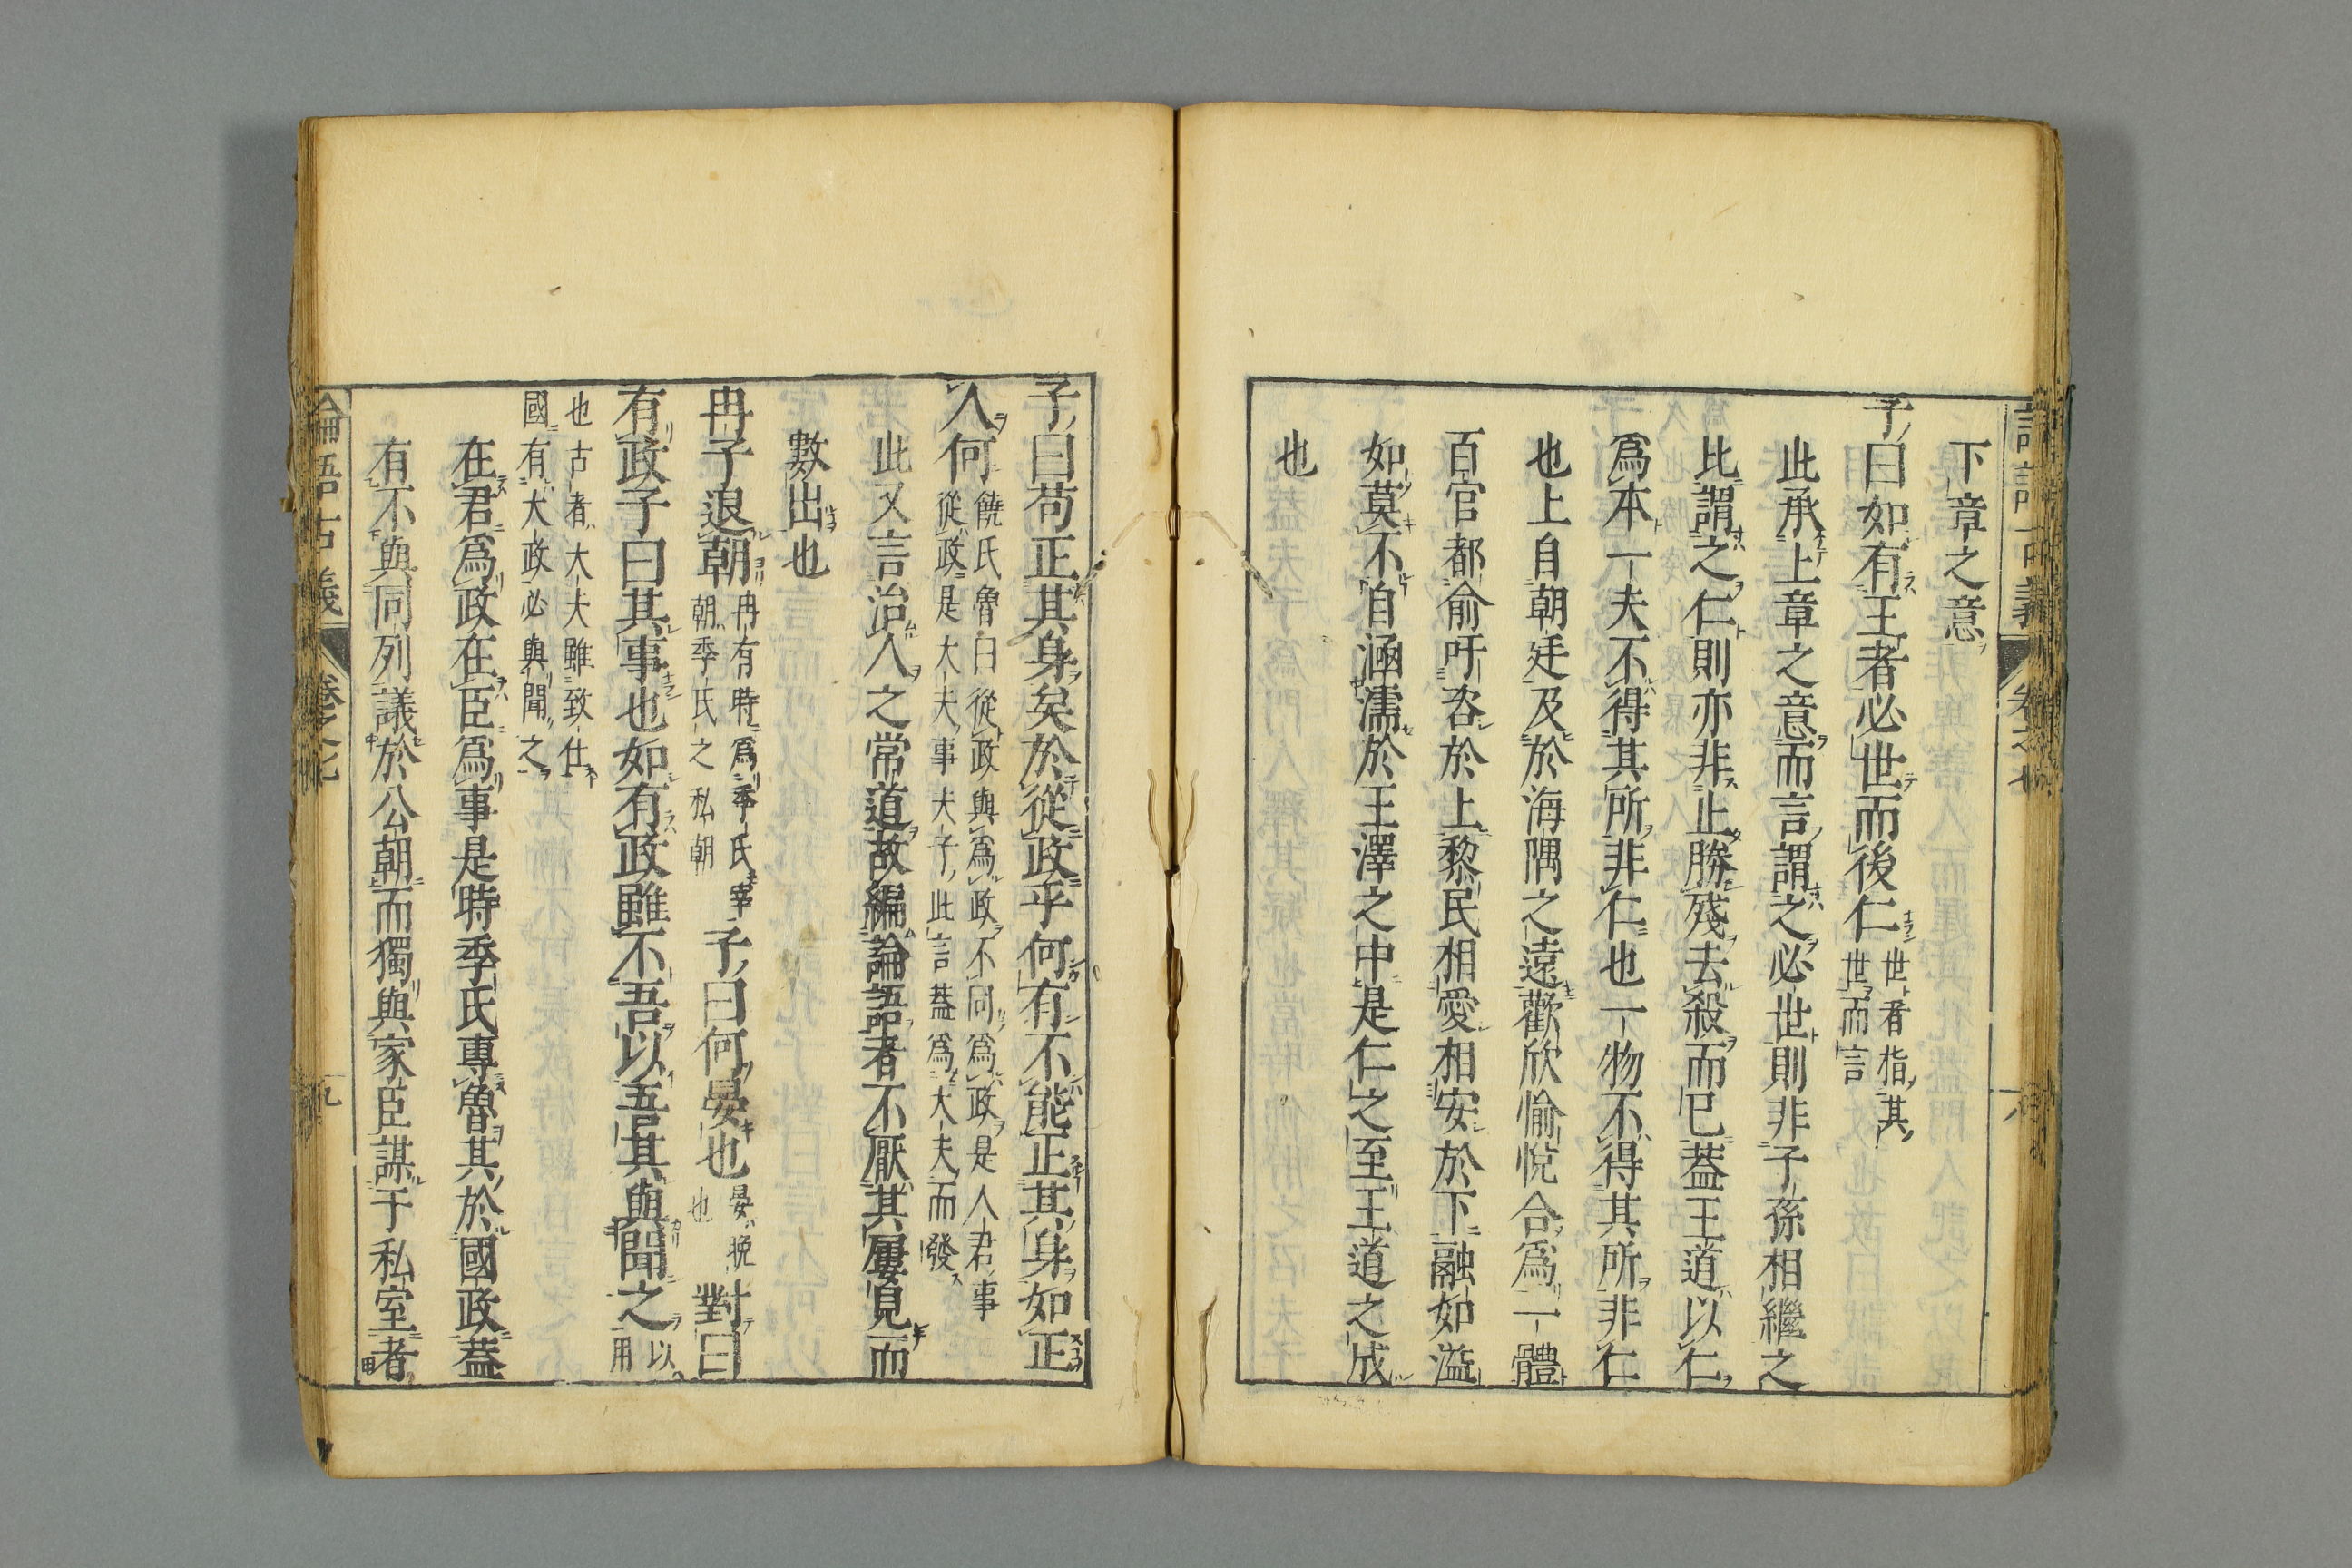 論語古義 卷之七 八
下章之意
子曰如有王者必世而後仁世者指其
世而言
此承上章之意而言謂之必世則非子孫相繼之
比謂之仁則亦非止勝殘去殺而已蓋王道以仁
爲本一夫不得其所非仁也一物不得其所非仁
也上自朝廷及於海隅之遠歡欣愉悅合爲一體
百官都俞吁咨於上黎民相愛相安於下融如溢
如莫不自涵濡於王澤之中是仁之至王道之成
也
子曰苟正其身矣於從政乎何有不能正其身如正
人何饒氏魯曰從政與爲政不同爲政是人君事
從政是大夫事夫子此言蓋爲大夫而發
此又言治人之常道故編論語者不厭其屢見而
數出也
冉子退朝冉有時爲季氏宰
朝季氏之私朝子曰何晏也晏晚
也對曰
有政子曰其事也如有政雖不吾以吾其與聞之以
用
也古者大夫雖致仕
國有大政必與聞之
在君爲政在臣爲事是時季氏專魯其於國政蓋
有不與同列議於公朝而獨與家臣謀于私室者
論語古義 卷之七 九